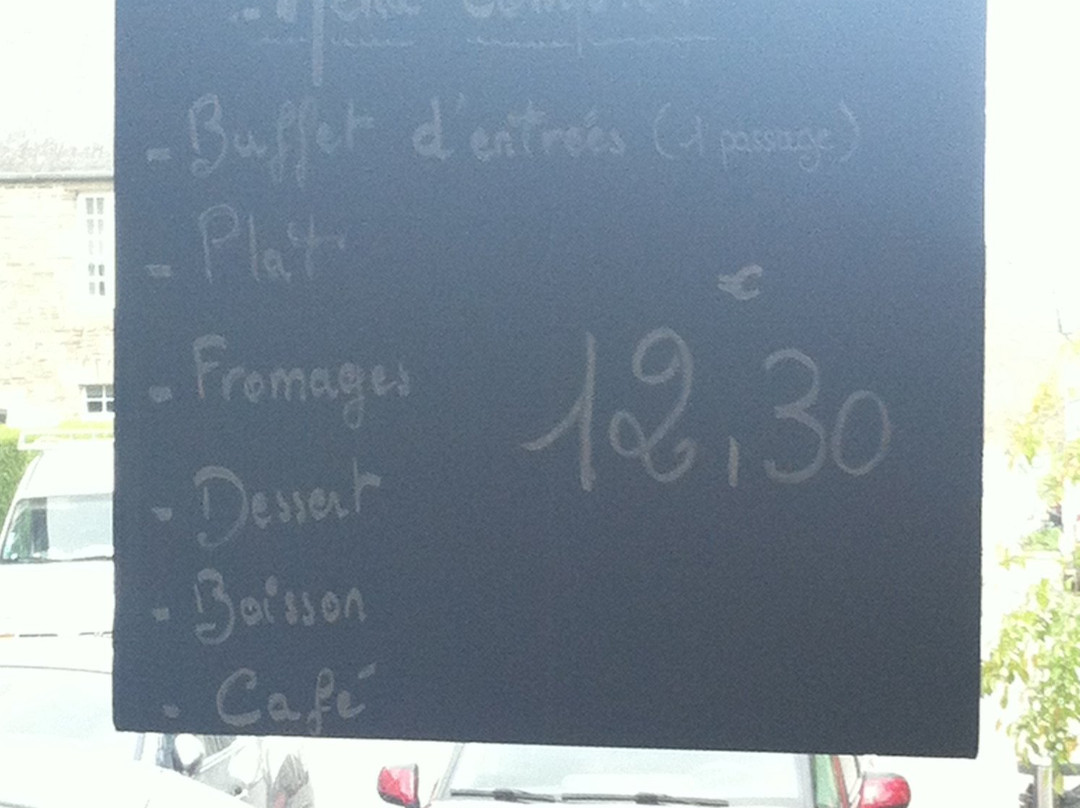 - Menu Complet
- Buffet d'entrées (1 passage)
- Plat
€
- Fromages
12,30
- Dessert
- Boisson
- Café